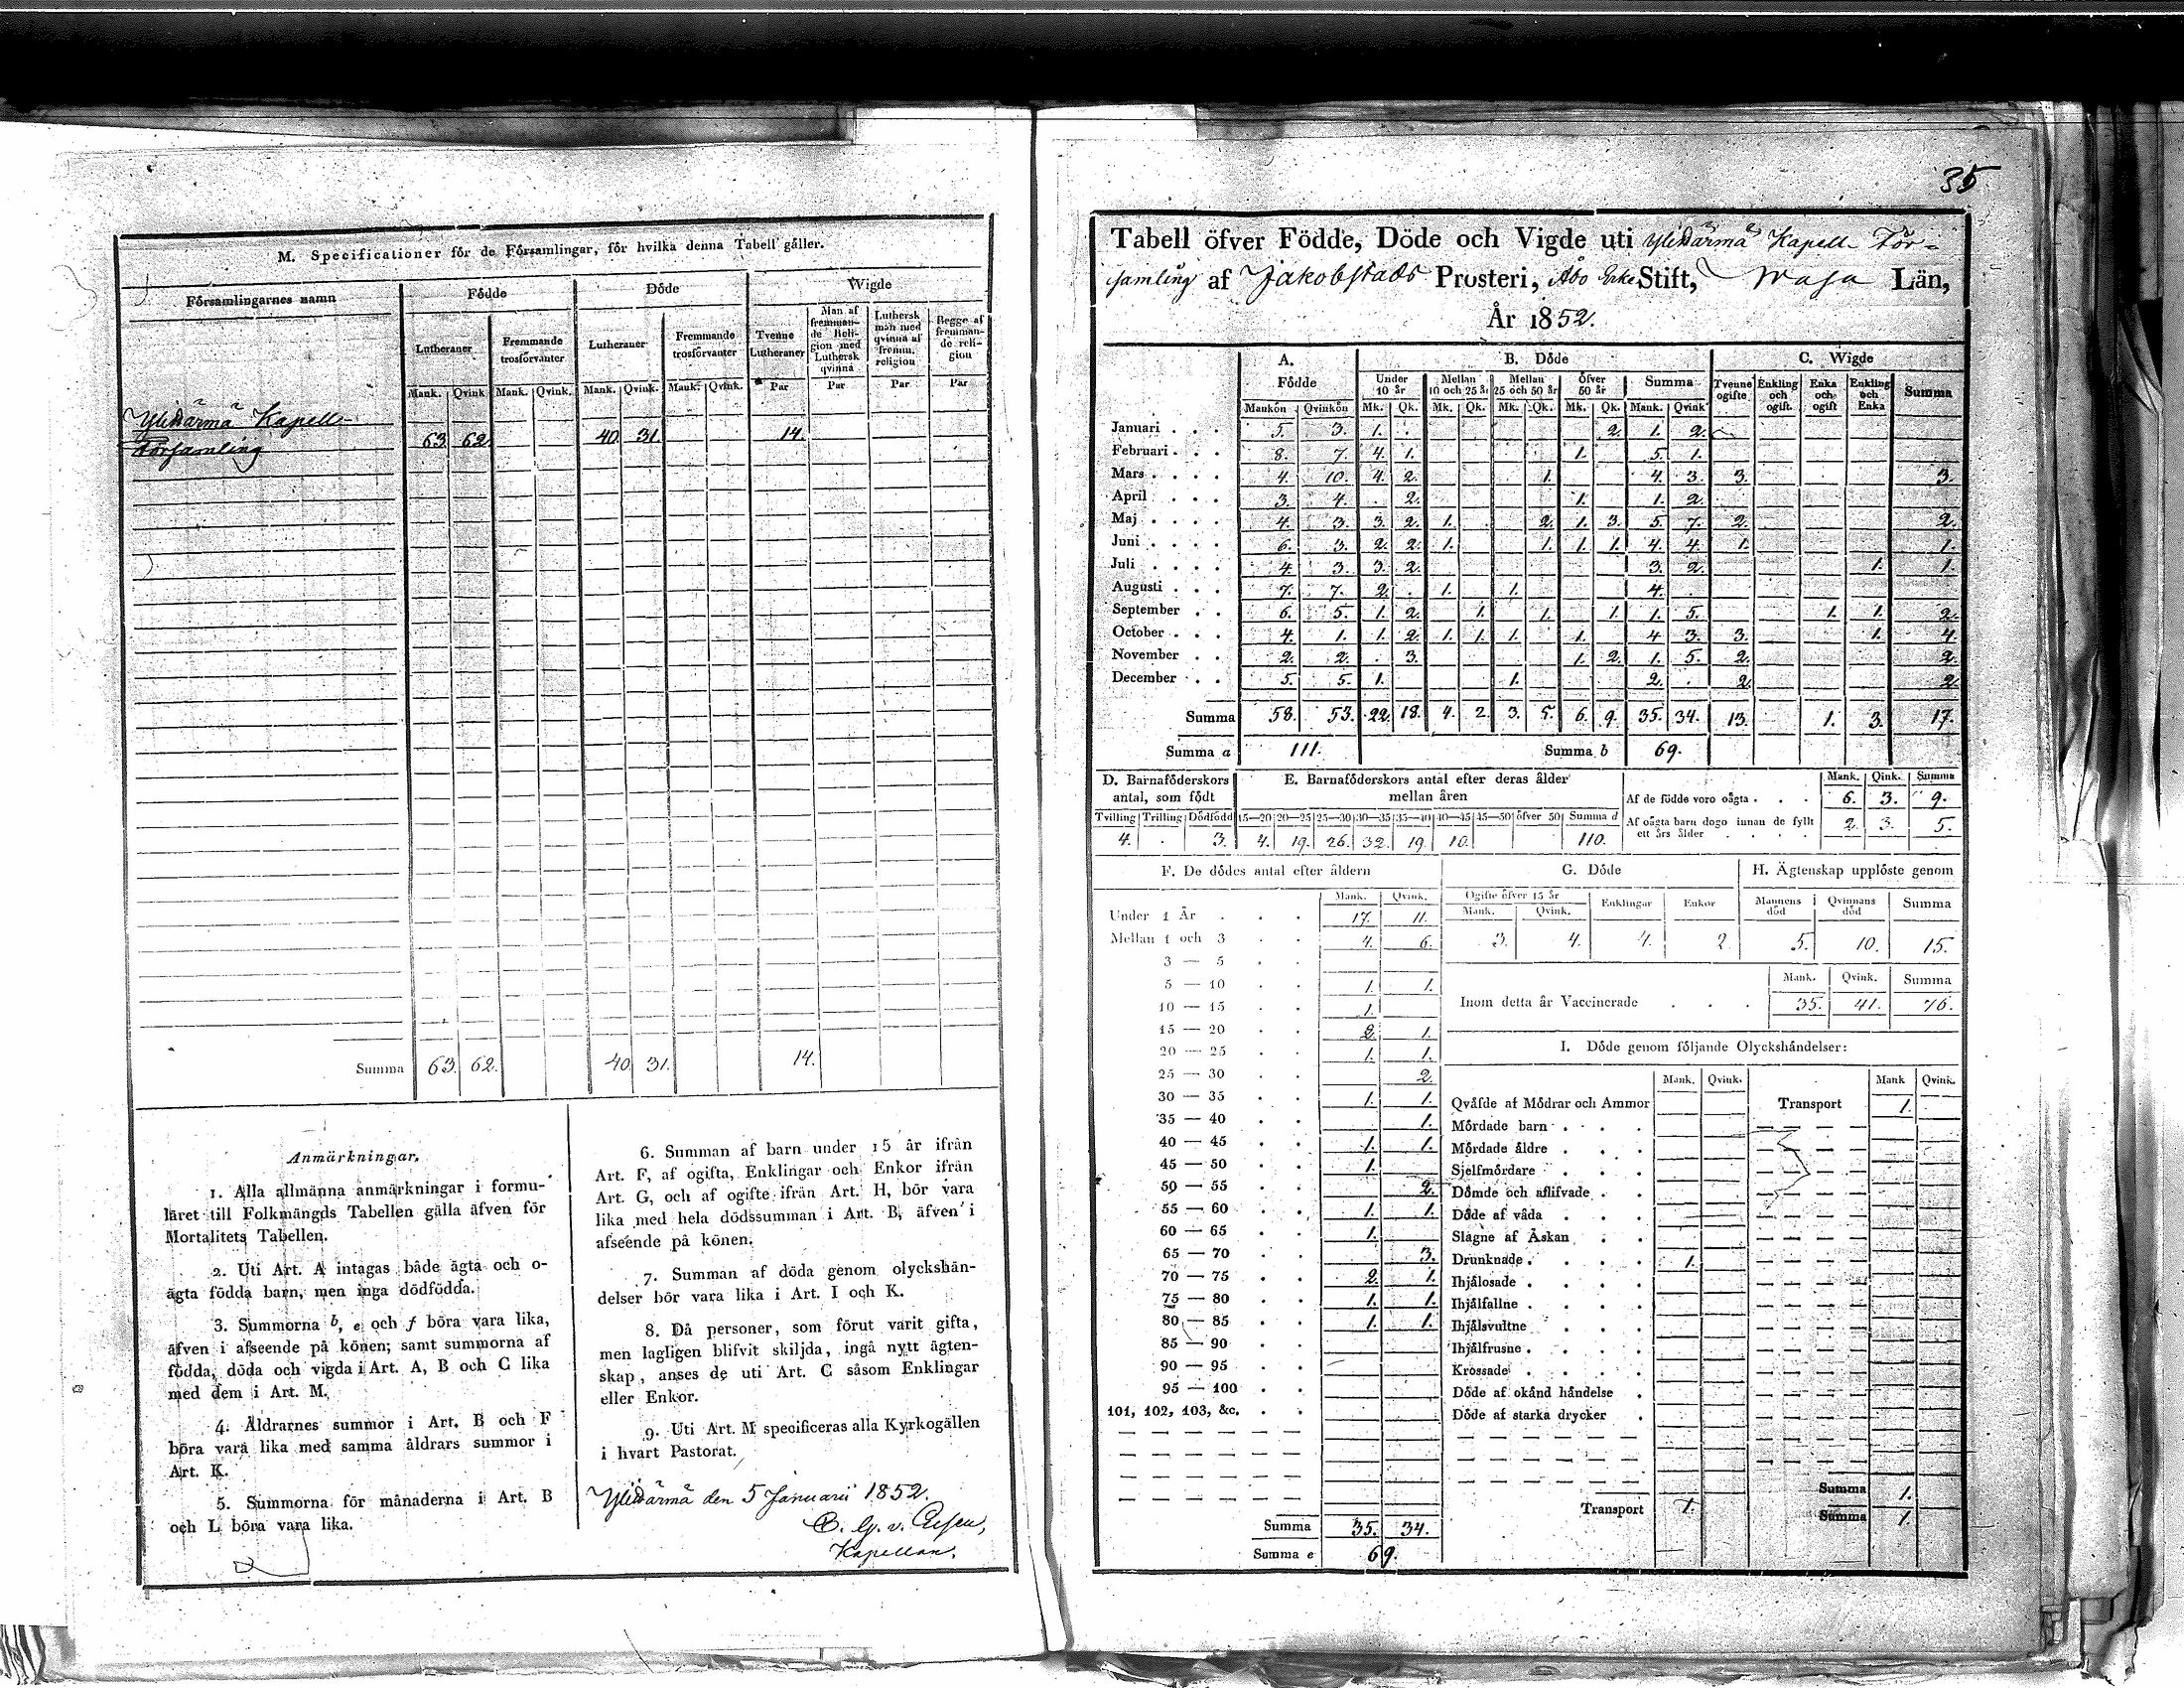 M. Specificationer för de Församlingar, för hvilka denna Tabell gäller.
Församlingarnes namn | Födde | Döde | Wigde
Lutheraner | Fremmande trosförvanter | Lutheraner | Fremmande trosförvanter | Tvenne Lutheraner | Man af fremmande Religion med Luthersk qvinna | Luthersk man med qvinna af fremm. religion | Begge af fremmande religion
Mank. | Qvink | Mank. | Qvink. | Mank. | Qvink. | Mank. | Qvink. | Par | Par | Par | Par
Ylihärmä Kapell-
Församling 63. 62. 40. 31. 14.
Summa 63. 62. 40. 31. 14.
Anmärkningar.
1. Alla allmänna anmärkningar i formu-
läret till Folkmängds Tabellen gälla äfven för
Mortalitets Tabellen.
2. Uti Art. A intagas både ägta och o-
ägta födda barn, men inga dödfödda.
3. Summorna b, e och f böra vara lika,
äfven i afseende på könen; samt summorna af
födda, döda och vigda i Art. A, B och C lika
med dem i Art. M.
4. Åldrarnes summor i Art. B och F
böra vara lika med samma åldrars summor i
Art. K.
5. Summorna för månaderna i Art. B
och L böra vara lika.
6. Summan af barn under 15 år ifrån
Art. F, af ogifta, Enklingar och Enkor ifrån
Art. G, och af ogifte ifrån Art. H, bör vara
lika med hela dödssumman i Art. B, äfven i
afseende på könen.
7. Summan af döda genom olyckshän-
delser bör vara lika i Art. I och K.
8. Då personer, som förut varit gifta,
men lagligen blifvit skiljda, ingå nytt ägten-
skap, anses de uti Art. C såsom Enklingar
eller Enkor.
9. Uti Art. M specificeras alla Kyrkogällen
i hvart Pastorat.
Ylihärmä den 5 Januarii 1852.
Kapellan.
35
Tabell öfver Födde, Döde och Vigde uti Ylihärmä Kapell För-
samling af Jakobstads Prosteri, Åbo Erke Stift, Wasa Län,
År 1852.
A. Födde | B. Döde | C. Wigde
Under 10 år | Mellan 10 och 25 år | Mellan 25 och 50 år | Öfver 50 år | Summa | Tvenne ogifte | Enkling och ogift. | Enka och ogift | Enkling och Enka | Summa
Mankön | Qvinkön | Mk. | Qk. | Mk. | Qk. | Mk. | Qk. | Mk. | Qk. | Mank. | Qvink
Januari 5. 3. 1. 2. 1. 2.
Februari 8. 7. 4. 1. 1. 5. 1.
Mars 4. 10. 4. 2. 1. 4. 3. 3. 3.
April 3. 4. 2. 1. 1. 2.
Maj 4. 3. 3. 2. 1. 2. 1. 3. 5. 7. 2. 2.
Juni 6. 3. 2. 2. 1. 1. 1. 1. 4. 4. 1. 1.
Juli 4. 3. 3. 2. 3. 2. 1. 1.
Augusti 7. 7. 2. 1. 1. 4.
September 6. 5. 1. 2. 1. 1. 1. 1. 5. 1. 1. 2.
October 4. 1. 1. 2. 1. 1. 1. 1. 4. 3. 3. 1. 4.
November 2. 2. 3. 1. 2. 1. 5. 2. 2.
December 5. 5. 1. 1. 2. 2. 2.
Summa 58. 53. 22. 18. 4. 2. 3. 5. 6. 9. 35. 34. 13. 1. 3. 17.
Summa a 111. Summa b 69.
D. Barnaföderskors antal, som födt
Tvilling | Trilling | Dödfödd
4. . 3.
E. Barnaföderskors antal efter deras ålder mellan åren
15—20 | 20—25 | 25—30 | 30—35 | 35—40 | 40—45 | 45—50 | öfver 50 | Summa d
4. 19. 26. 32. 19. 10. 110.
Mank. | Qink. | Summa
Af de födde voro oägta 6. 3. 9.
Af oägta barn dogo innan de fyllt ett års ålder 2. 3. 5.
F. De dödes antal efter åldern
Mank. | Qvink.
Under 1 År 17. 11.
Mellan 1 och 3 4. 6.
3 — 5
5 — 10 1. 1.
10 — 15 1.
15 — 20 2. 1.
20 — 25 1. 1.
25 — 30 2.
30 — 35 1. 1.
35 — 40 1.
40 — 45 1. 1.
45 — 50 1.
50 — 55 2.
55 — 60 1. 1.
60 — 65 1.
65 — 70 3.
70 — 75 2. 1.
75 — 80 1. 1.
80 — 85 1. 1.
85 — 90
90 — 95
95 — 100
101, 102, 103, &c.
Summa 35. 34.
Summa e 69.
G. Döde
Ogifte öfver 15 år | Enklingar | Enkor
Mank. | Qvink.
3. 4. 4. 2.
H. Ägtenskap upplöste genom
Mannens död | Qvinnans död | Summa
5. 10. 15.
Mank. | Qvink. | Summa
Inom detta år Vaccinerade 35. 41. 76.
I. Döde genom följande Olyckshändelser:
Mank. | Qvink. | Mank | Qvink.
Qväfde af Mödrar och Ammor | Transport 1.
Mördade barn
Mördade äldre
Sjelfmördare
Dömde och aflifvade
Döde af våda
Slagne af Åskan
Drunknade 1.
Ihjälosade
Ihjälfallne
Ihjälsvultne
Ihjälfrusne
Krossade
Döde af okänd händelse
Döde af starka drycker
Summa 1.
Transport 1. Summa 1.